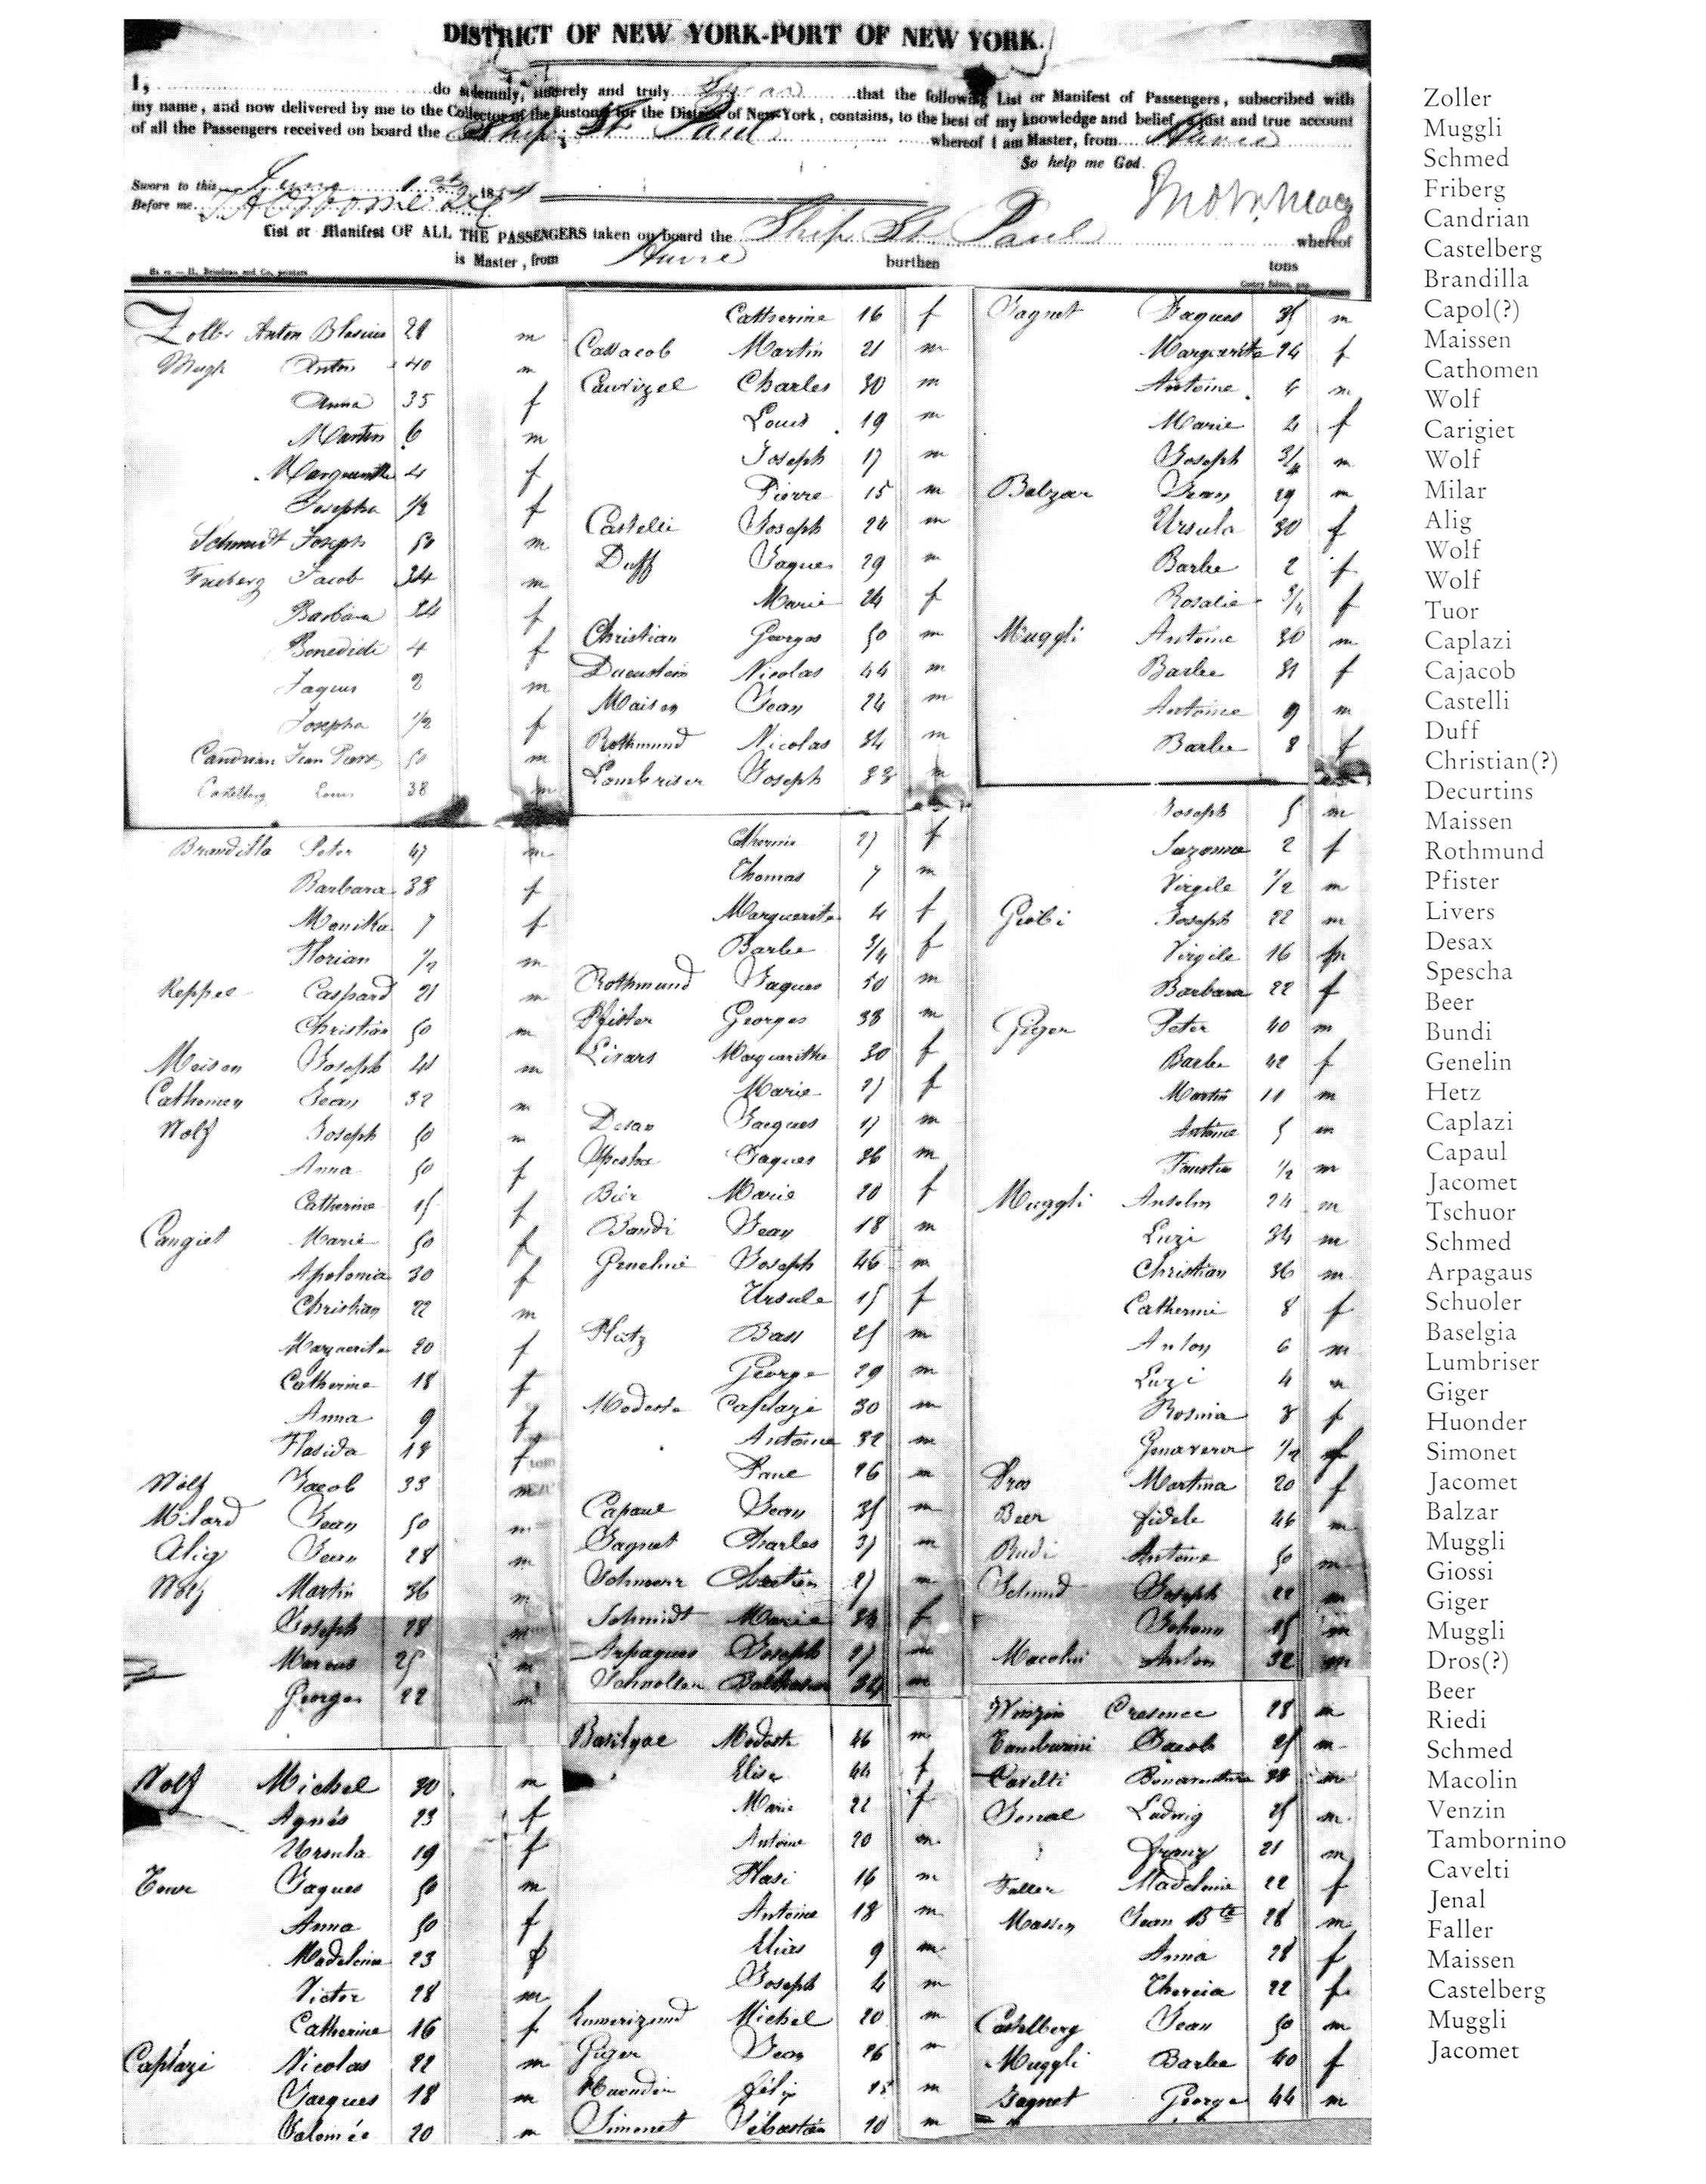 DISTRICT OF NEW YORK-PORT OF NEW YORK.
I, do solemnly, sincerely and truly Swear that the following List or Manifest of Passengers, subscribed with
my name, and now delivered by me to the Collector of the Customs for the District of New-York, contains, to the best of my knowledge and belief, a just and true account
of all the Passengers received on board the Ship St. Paul whereof I am Master, from Havre
So help me God.
Sworn to this June 1st 1854
Before me
List or Manifest OF ALL THE PASSENGERS taken on board the Ship St Paul whereof
is Master, from Havre burthen tons
Zoller Anton Blasius 28 m
Anton 40 m
Anna 35 f
Martin 6 m
4 f
Josepha 1/2 f
Schmidt Joseph 50 m
Jacob 34 m
Barbara 34 f
4 f
Jaques 2 m
Josepha 1/2 f
Candrian Jean 50 m
Castelberg Louis 38 m
Brandilla Peter 47 m
Barbara 38 f
Monika 7 f
Florian 1/2 m
Caspard 21 m
Christian 50 m
Joseph 41 m
Cathomen Jean 32 m
Wolf Joseph 50 m
Anna 50 f
Catherine 15 f
Marie 50 f
Apolonia 30 f
Christian 22 m
Marguerite 20 f
Catherine 18 f
Anna 9 f
18 f
Wolf Jacob 33 m
Milard Jean 50 m
Alig Jean 28 m
Wolf Martin 36 m
Joseph 28 m
Marcus 25 m
Georges 22 m
Wolf Michel 30 m
Agnés 23 f
Ursula 19 f
Jaques 50 m
Anna 50 f
Madeleine 23 f
Victor 28 m
Catherine 16 f
Caplazi Nicolas 22 m
Jacques 18 m
Salomée 20 m
Catherine 16 f
Cassacob Martin 21 m
Charles 30 m
Louis 19 m
Joseph 17 m
Pierre 15 m
Castelli Joseph 24 m
Duff Jaques 29 m
Marie 24 f
Christian Georges 50 m
Nicolas 44 m
Maisen Jean 24 m
Rothmund Nicolas 34 m
Lombriser Joseph 33 m
27 f
Thomas 7 m
Marguerite 4 f
Barbe 3/4 f
Rothmund Jaques 50 m
Pfister Georges 38 m
30 f
Marie 27 f
Jacques 17 m
Jaques 26 m
Bier Marie 20 f
Bundi Jean 18 m
Joseph 46 m
Ursule 15 f
25 m
George 29 m
Modeste Caplazi 30 m
Antoine 32 m
26 m
Capaul Jean 35 m
Charles 37 m
27 m
Schmidt Marie 34 f
Arpagaus Joseph 27 m
34 m
Modeste 46 m
Elise 44 f
Marie 22 f
Antoine 20 m
16 m
Antoine 18 m
Elias 9 m
Joseph 4 m
Michel 20 m
Giger Jean 26 m
Félix m
Simonet Sébastien m
Jaques 35 m
Marguerite 24 f
Antoine 6 m
Marie 4 f
Joseph 3/4 m
Balzar Jean 29 m
Ursula 30 f
Barbe 2 f
Rosalie 3/4 f
Muggli Antoine 30 m
Barbe 31 f
Antoine 9 m
Barbe 8 f
Joseph 5 m
Suzanna 2 f
Virgile 1/2 m
Joseph 22 m
Virgile 16 m
Barbara 22 f
Giger Peter 40 m
Barbe 42 f
Martin 11 m
Antoine 5 m
1/2 m
Muggli Anselm 24 m
Luzi 34 m
Christian 36 m
8 f
Anton 6 m
Luzi 4 m
Rosina 3 f
1/2 f
Dros Martina 20 f
Beer Fidele 46 m
Antoine 50 m
Schmid Joseph 22 m
Johann 15 m
Macolin Anton 32 m
28 m
Jacob 25 m
Cavelti Bonaventura 38 m
Ludwig 25 m
Franz 21 m
Faller Madeleine 22 f
Jean Bte 28 m
Anna 28 f
Theresia 22 f
Castelberg Jean 50 m
Muggli Barbe 60 f
George 44 m
Zoller
Muggli
Schmed
Friberg
Candrian
Castelberg
Brandilla
Capol(?)
Maissen
Cathomen
Wolf
Carigiet
Wolf
Milar
Alig
Wolf
Wolf
Tuor
Caplazi
Cajacob
Castelli
Duff
Christian(?)
Decurtins
Maissen
Rothmund
Pfister
Livers
Desax
Spescha
Beer
Bundi
Genelin
Hetz
Caplazi
Capaul
Jacomet
Tschuor
Schmed
Arpagaus
Schuoler
Baselgia
Lumbriser
Giger
Huonder
Simonet
Jacomet
Balzar
Muggli
Giossi
Giger
Muggli
Dros(?)
Beer
Riedi
Schmed
Macolin
Venzin
Tambornino
Cavelti
Jenal
Faller
Maissen
Castelberg
Muggli
Jacomet